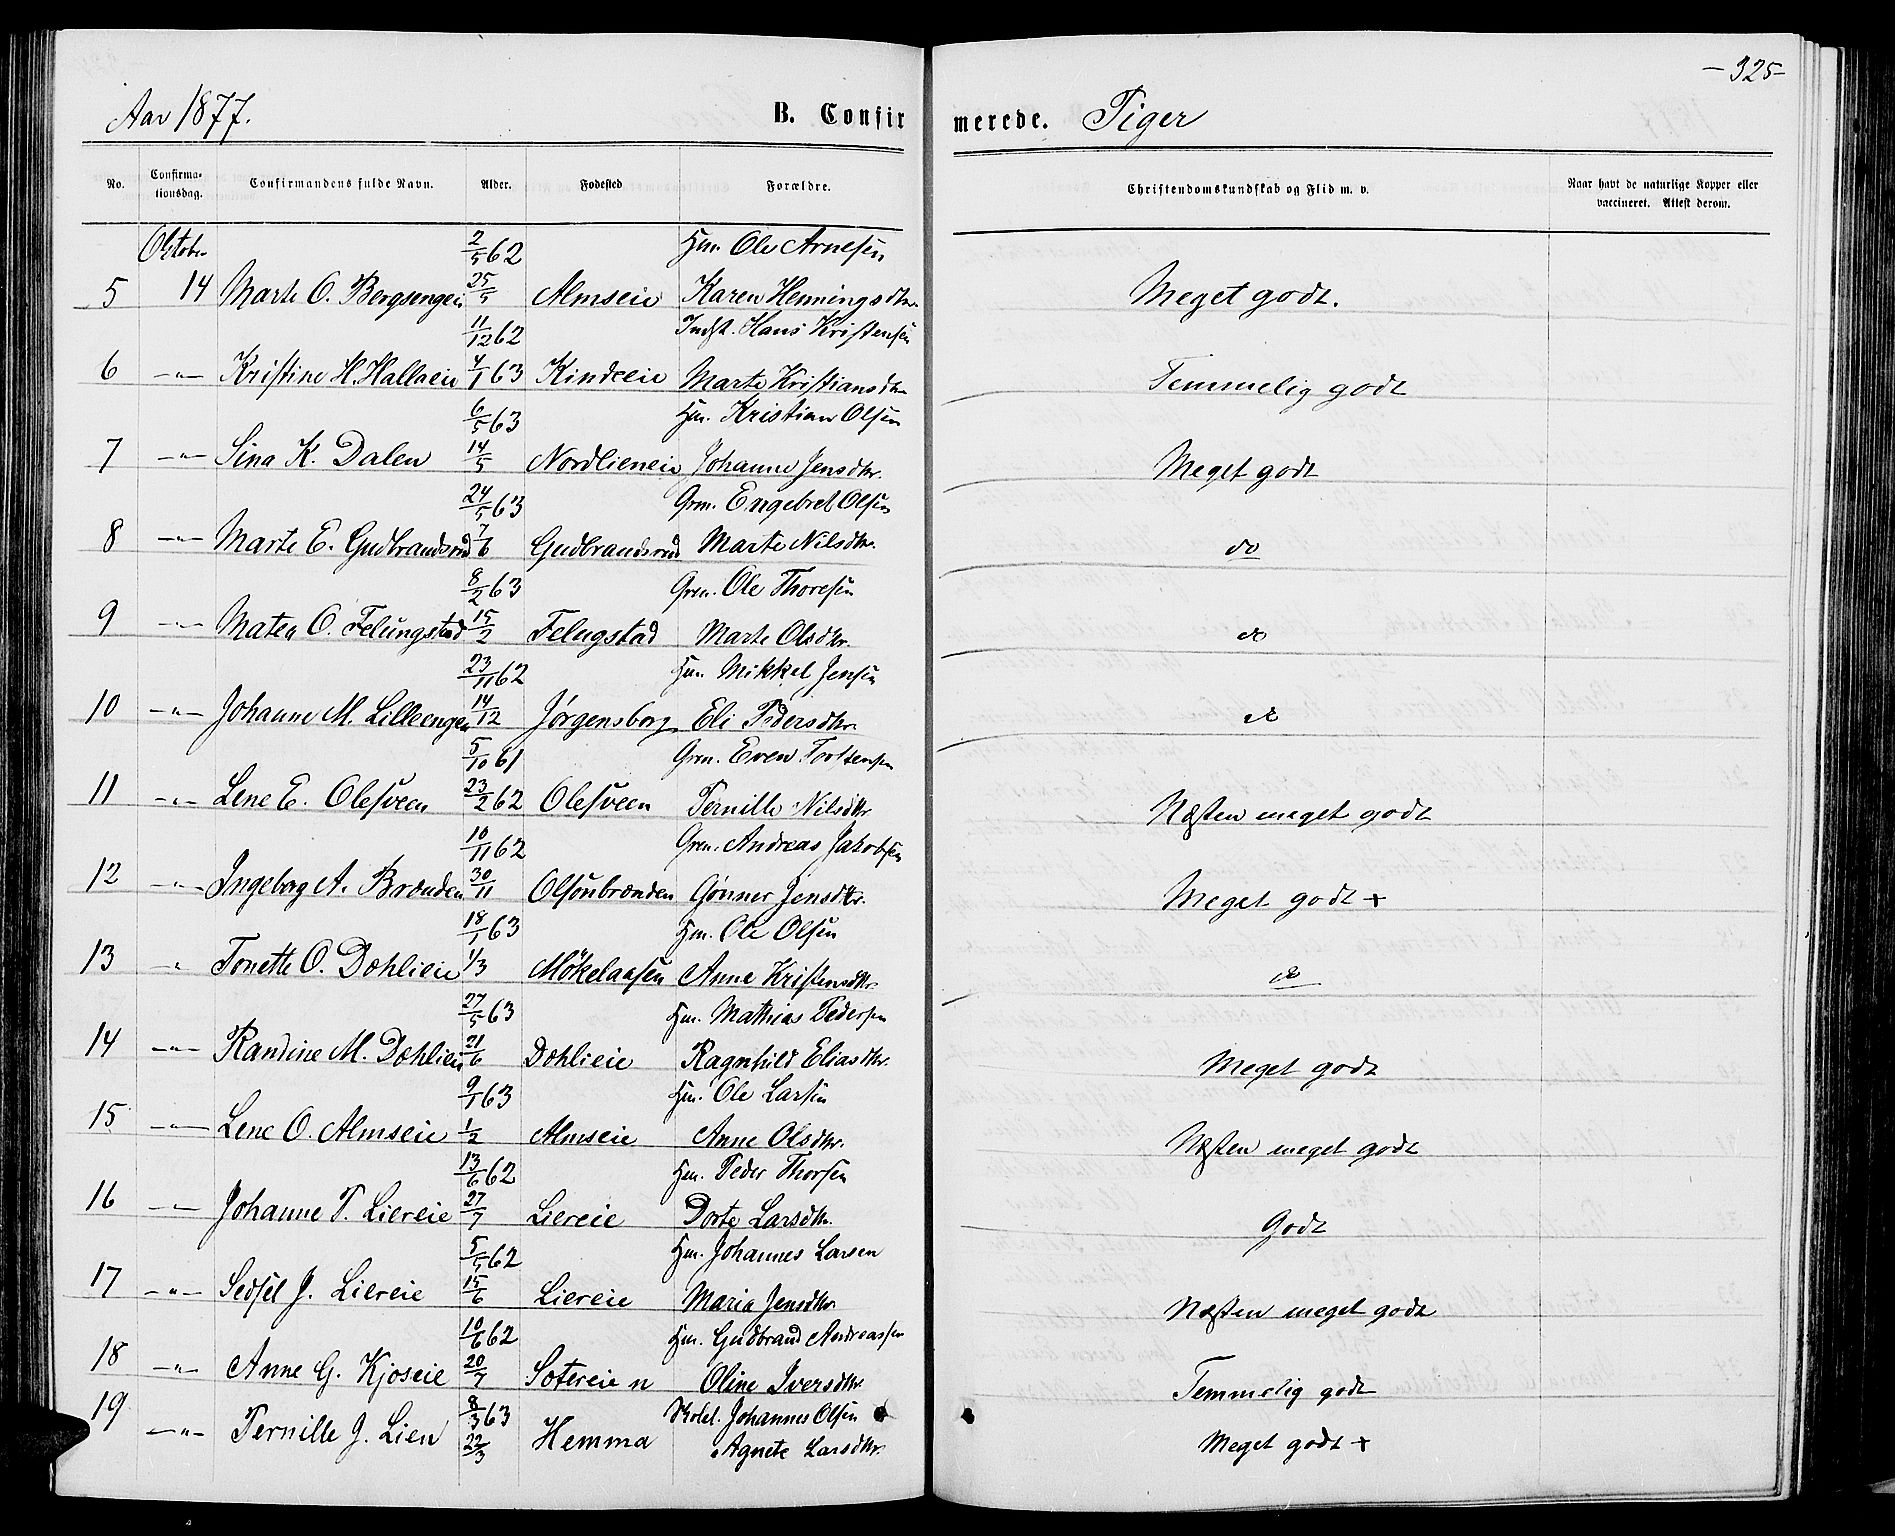 -325-
Aar 1877. B. Confirmerede. Piger
No. Confirmationsdag. Confirmandens fulde Navn. Alder. Fødested Forældre. Christendomskundskab og Flid m. v. Naar havt de naturlige Kopper eller vaccineret. Attest derom.
October 2/5 62 Hm. Ole Arnesen
5 14 Marte O. Bergsengen 25/5 Almseie Karen Henningsdtr. Meget godt.
11/12 62 Indst. Hans Kristensen
6 -"- Kristine H. Hallaeie 4/1 63 Kindseie Marte Kristiansdtr Temmelig godt
6/5 63 Hm. Kristian Olsen
7 -"- Sina K. Dalen 14/5 Nordlieneie Johanne Jensdtr. Meget godt
24/5 63 Grm. Engebret Olsen
8 -"- Marte E. Gudbrandsrud 7/6 Gudbrandsrud Marte Nilsdtr. do
8/2 63 Grm. Ole Thoresen
9 -"- Matea O. Felungstad 15/2 Felugstad Marte Olsdtr. do
23/11 62 Hm. Mikkel Jensen
10 -"- Johanne M. Lilleengen 14/12 Jørgensborg Eli Pedersdtr. do
5/10 61 Grm. Even Torstensen
11 -"- Lene E. Olesveen 23/2 62 Olesveen Pernille Nilsdtr Næsten meget godt
10/11 62 Grm. Andreas Jakobsen
12 -"- Ingeborg A. Brænden 30/11 Olsønbrænden Gønner Jensdtr. Meget godt +
18/1 63 Hm. Ole Olsen
13 " Tonette O. Dohlieie 1/3 Møkelaasen Anne Kristensdtr. do
27/5 63 Hm. Mathias Pedersen
14 -"- Randine M. Dohlieie 21/6 Dohlieie Ragnhild Eliasdtr. Meget godt
9/1 63 Hm. Ole Larsen
15 -"- Lene O. Almseie 1/2 Almseie Anne Olsdtr. Næsten meget godt
13/6 62 Hm. Peder Thorsen
16 -"- Johanne P. Liereie 27/7 Liereie Dorte Larsdtr. Godt
5/5 62 Hm. Johannes Larsen
17 -"- Sedsel J. Liereie 15/6 Liereie Maria Jensdtr. Næsten meget godt
10/6 62 Hm. Gudbrand Andreassen
18 -"- Anne G. Kjoseie 20/7 Sotereie n Oline Iversdtr. Temmelig godt
19 8/3 63 Johannes Olsen
-"- Pernille J. Lien 22/3 Hemma Agnete Larsdtr. Meget godt +